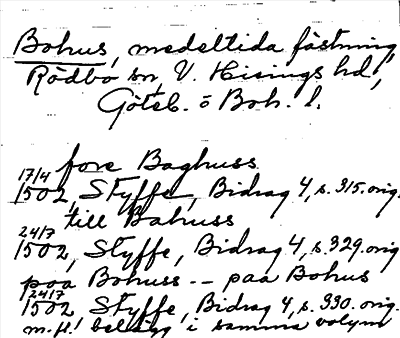 Bohus, medeltida fästning,
Rödbo sn, V. Hisings hd,
Göteb. o Boh. l.
fore Baghuss
17/4 1502, Styffe, Bidrag 4, s. 315. orig.
till Bahuss
24/7 1502, Styffe, Bidrag 4, s. 329. orig
poa Bohuss -- paa Bohus
24/7 1502 Styffe, Bidrag 4, s. 330. orig.
m.fl. belägg i samma volym